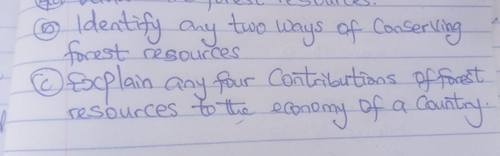 forest resources.
(b) Identify any two ways of Conserving
forest resources
(C) Explain any four Contributions of forest
resources to the economy of a Country.